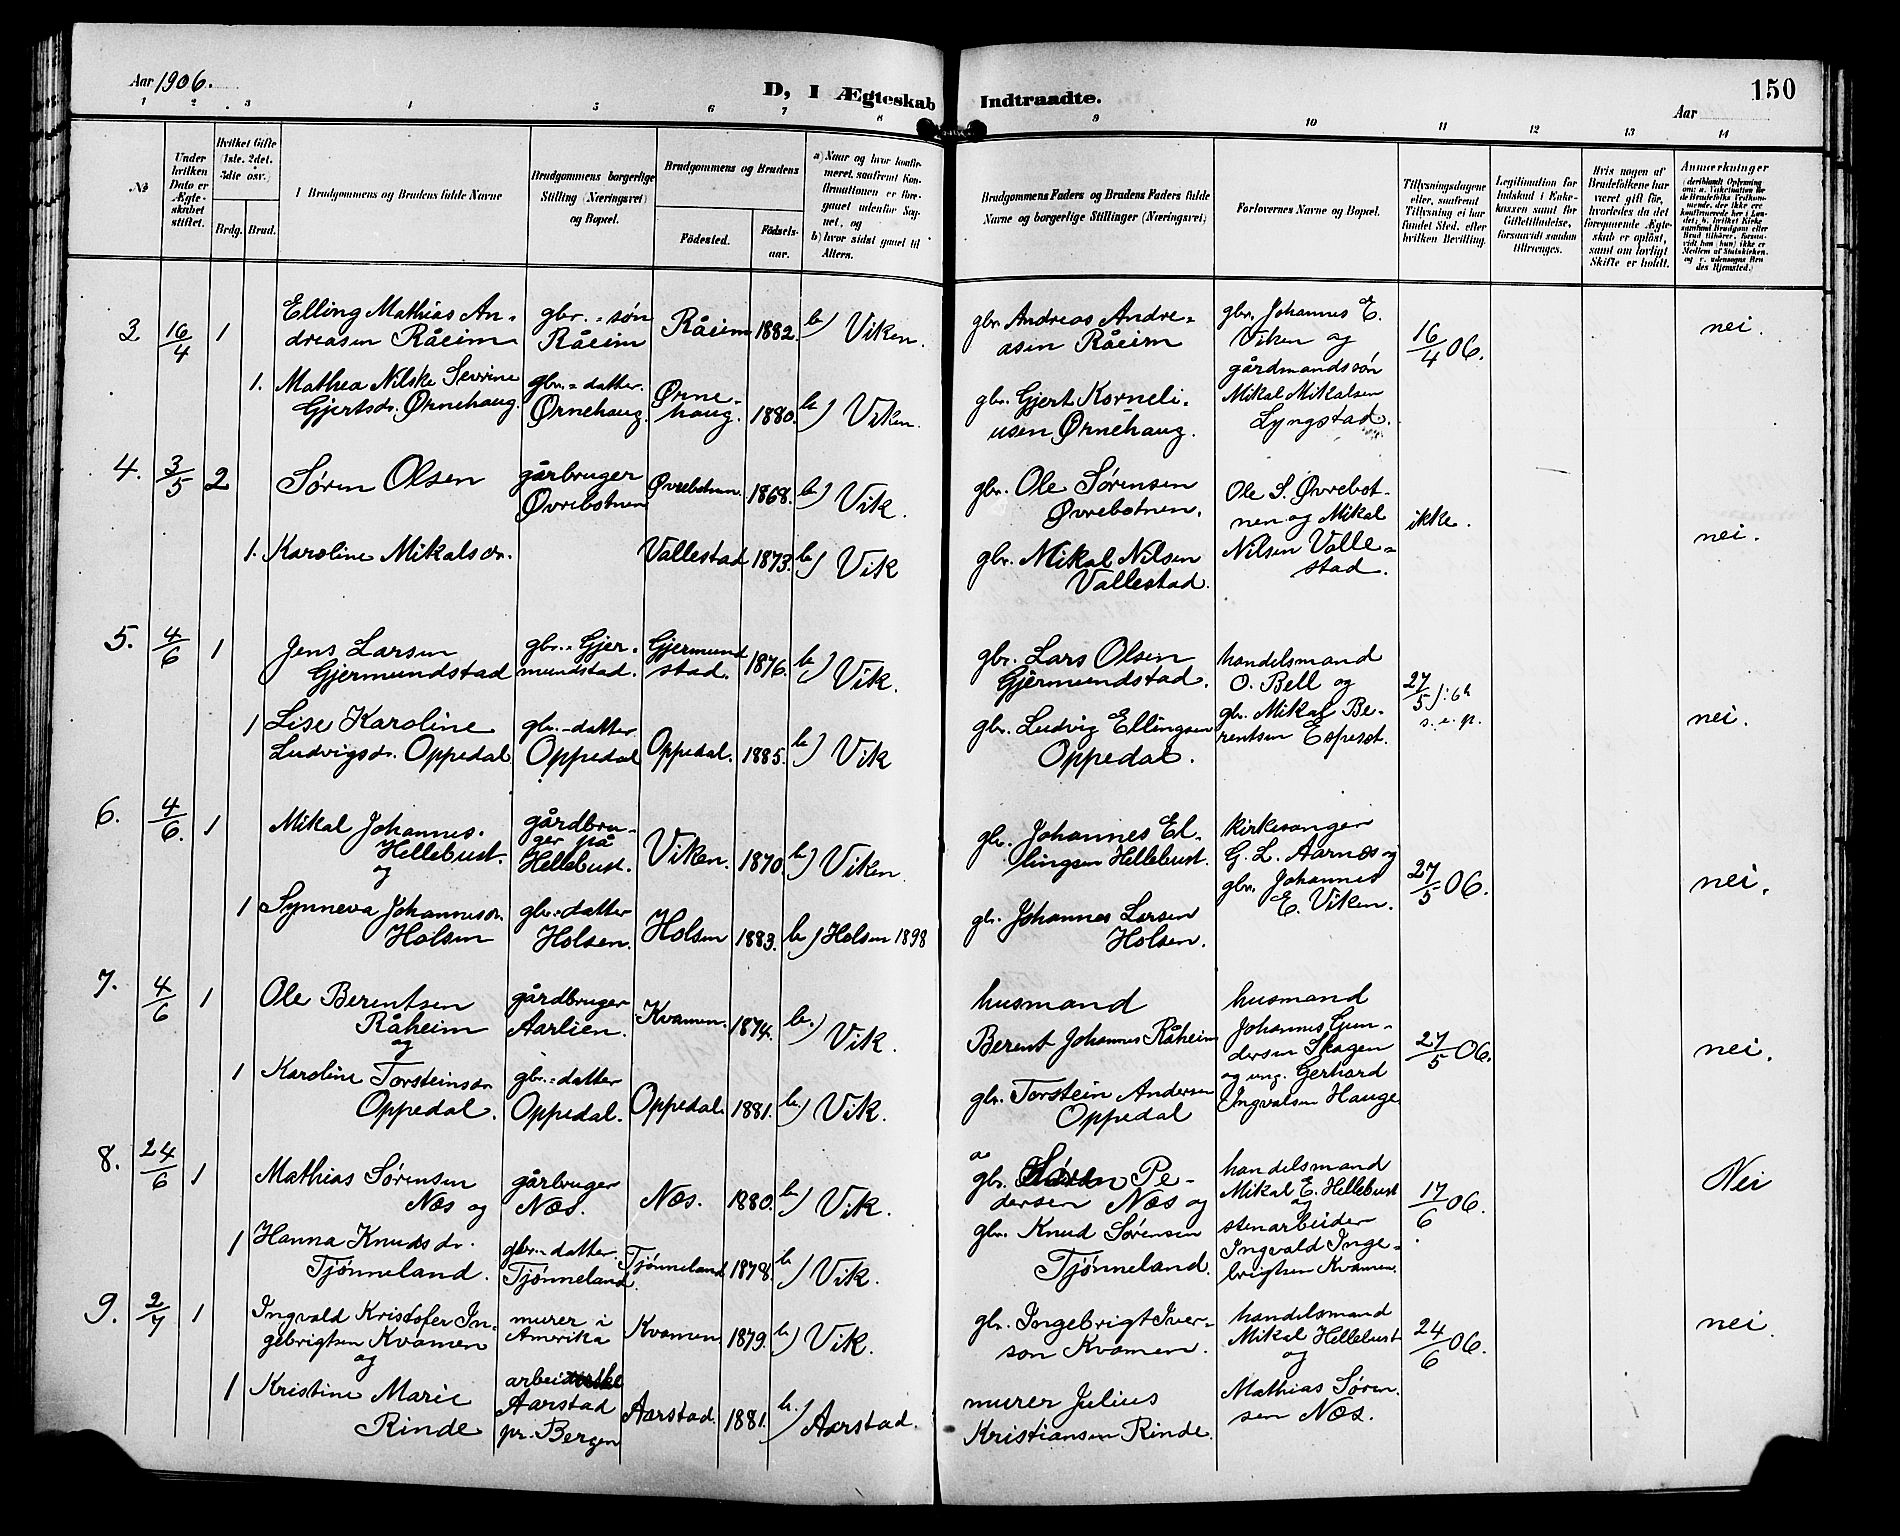 Aar 1906.
D, I Ægteskab Indtraadte.
150
Aar
1 2 3 4 5 6 7 8 9 10 11 12 13 14
No
Under hvilken Dato er Ægteskabet stiftet.
Hvilket Gifte (1ste, 2det, 3die osv.)
Brdg. Brud.
I Brudgommens og Brudens fulde Navne
Brudgommens borgerlige Stilling (Næringsvei) og Bopæl.
Brudgommens og Brudens
Fødested.
Fødselsaar.
a) Naar og hvor konfirmeret, saafremt Konfirmationen er foregaaet udenfor Sognet, og
b) hvor sidst gaaet til Altern.
Brudgommens Faders og Brudens Faders fulde Navne og borgerlige Stillinger (Næringsvei)
Forlovernes Navne og Bopæl.
Tillysningsdagene eller, saafremt Tillysning ei har fundet Sted, efter hvilken Bevilling.
Legitimation for Indskud i Enkekassen samt for Giftetilladelse, forsaavidt saadan tiltrænges.
Hvis nogen af Brudefolkene har været gift før, hvorledes da det foregaaende Ægteskab er opløst, samt om lovligt Skifte er holdt.
Anmærkninger
3 16/4 1
Elling Mathias An-
dreasen Råeim
gbr. = søn
Råeim
Råeim 1882. b) Viken.
gbr. Andreas Andre=
asen Råeim
gbr. Johannes E.
Viken og
gårdmandssøn
Mikal Mikalsen
Lyngstad.
16/4 06.
nei.
1. Mathea Nilske Sevrine
Gjertsdr. Ørnehaug.
gbr. = datter.
Ørnehaug.
Ørne-
haug.
1880. b) Viken.
gbr. Gjert Korneli-
usen Ørnehaug.
4. 3/5 2
Søren Olsen
gårbruger
Øvrebotnen
Øvrebotnen. 1868. b) Vik.
gbr. Ole Sørensen
Øvrebotnen.
Ole S. Øvrebot-
nen og Mikal
Nilsen Valle=
stad.
ikke.
nei.
1. Karoline Mikalsdr.
Vallestad 1873. b) Vik
gbr. Mikal Nilsen
Vallestad.
5. 4/6 1
Jens Larsen
Gjermundstad
gbr. = Gjer-
mundstad.
Gjermund
stad.
1876. b) Vik.
gbr. Lars Olsen
Gjermundstad.
handelsmand
O. Bell og
gbr. Mikal Be-
rentsen Espeset.
27/5
s. e. p.
nei.
1 Lise Karoline
Ludvigsdr. Oppedal
gbr. = datter
Oppedal
Oppedal. 1885. b) Vik
gbr. Ludvig Ellingsen
Oppedal.
6. 4/6. 1
Mikal Johannes.
Hellebust.
og
gårdbru-
ger på
Hellebust.
Viken. 1870. b) Viken.
gbr. Johannes El-
lingsen Hellebust.
kirkesanger
G. L. Aarnes og
gbr. Johannes
E. Viken.
27/5 06.
nei.
1 Synneva Johannesdr.
Holsen
gbr. = datter
Holsen.
Holsen 1883. b) Holsen 1898
gbr. Johannes Larsen
Holsen.
7. 4/6 1
Ole Berentsen
Råheim
og
gårdbruger
Aarlien.
Kvamen. 1874. b.) Vik.
husmand
Berent Johannes Råheim
husmand
Johannes Gun-
dersen Skagen
og ung. Gerhard
Ingvalsen Hauge
27/5 06.
nei.
1 Karoline Torsteinsdr.
Oppedal.
gbr. = datter
Oppedal.
Oppedal. 1881. b.) Vik.
gbr. Torstein Andersen
Oppedal
8. 24/6 1
Mathias Sørensen
Næs og
gårbruger
Næs.
Næs. 1880. b) Vik.
gbr. Søren Pe-
dersen Næs og
handelsmand
Mikal E. Hellebust
og
stenarbeider
Ingvald Inge-
brigtsen Kvamen.
17/6 06.
Nei
1 Hanna Knudsdr.
Tjønneland.
gbr. = datter.
Tjønneland.
Tjønneland 1878. b) Vik.
gbr. Knud Sørensen
Tjønneland.
9. 2/7 1
Ingvald Kristofer In-
gebrigtsen Kvamen
og
murer i
Amerika
Kvamen 1879. b) Vik.
gbr. Ingebrigt Iver-
son Kvamen.
handelsmand
Mikal Hellebust
og
Mathias Søren.
sen Næs.
24/6 06.
nei.
1 Kristine Marie
Rinde
Aarstad
pr. Bergen
Aarstad. 1881. b.) Aarstad.
murer Julius
Kristiansen Rinde.